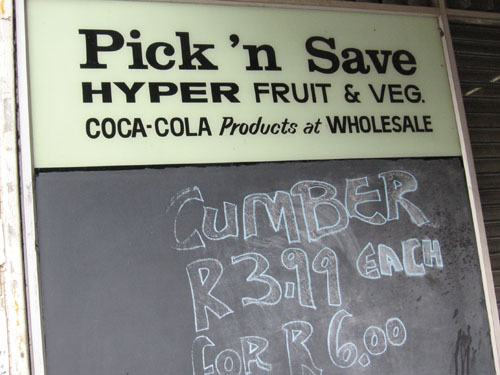 Pick 'n Save
HYPER FRUIT & VEG.
COCA-COLA Products at WHOLESALE
CUMBER
R3.99 EACH
FOR R6.00